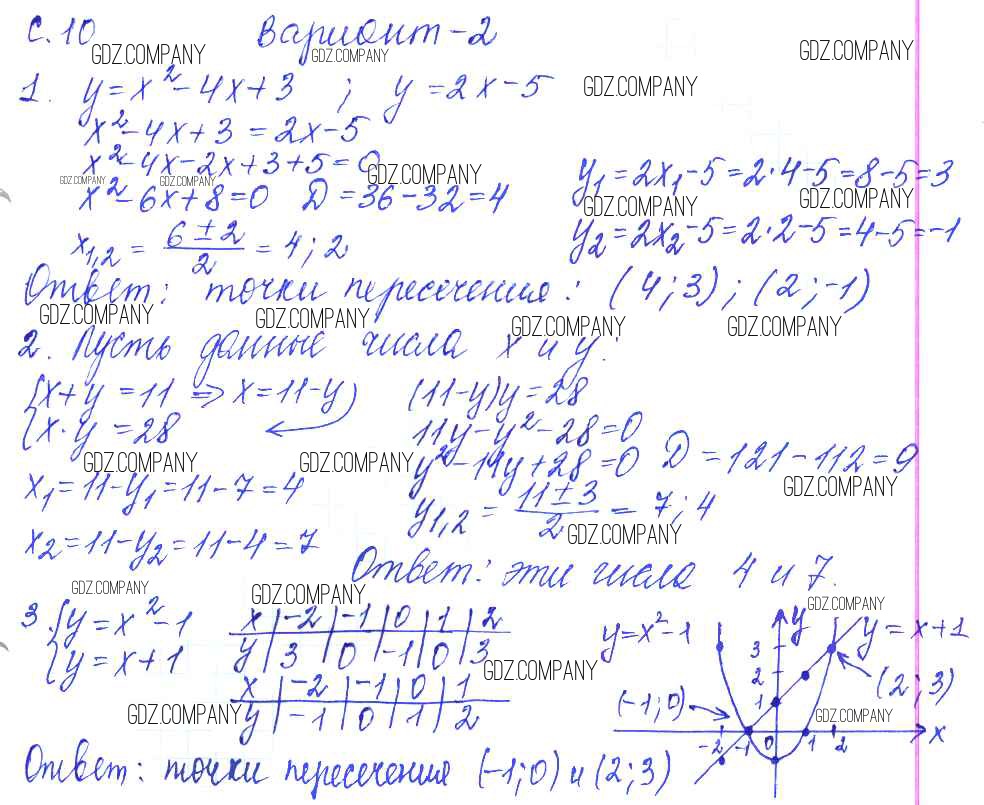 С.10 Вариант-2
GDZ.COMPANY GDZ.COMPANY GDZ.COMPANY
1. y=x²-4x+3 ; y=2x-5 GDZ.COMPANY
x²-4x+3=2x-5
x²-4x-2x+3+5=0 GDZ.COMPANY
GDZ.COMPANY GDZ.COMPANY
x²-6x+8=0 D=36-32=4
y₁=2x₁-5=2·4-5=8-5=3
GDZ.COMPANY GDZ.COMPANY
x₁,₂ = (6±2)/2 = 4; 2
y₂=2x₂-5=2·2-5=4-5=-1
Ответ: точки пересечения: (4;3); (2;-1)
GDZ.COMPANY GDZ.COMPANY GDZ.COMPANY GDZ.COMPANY
2. Пусть данные числа x и y.
{x+y=11 => x=11-y
{x·y=28
(11-y)y=28
11y-y²-28=0
y²-11y+28=0 D=121-112=9
GDZ.COMPANY GDZ.COMPANY GDZ.COMPANY
y₁,₂ = (11±3)/2 = 7; 4
GDZ.COMPANY
x₁=11-y₁=11-7=4
x₂=11-y₂=11-4=7
Ответ: эти числа 4 и 7.
GDZ.COMPANY GDZ.COMPANY GDZ.COMPANY
3. {y=x²-1
{y=x+1
x | -2 | -1 | 0 | 1 | 2
y | 3 | 0 | -1 | 0 | 3
GDZ.COMPANY
x | -2 | -1 | 0 | 1
y | -1 | 0 | 1 | 2
GDZ.COMPANY
y=x²-1 y y=x+1
3
2 (2;3)
(-1;0) 1
GDZ.COMPANY
-2 -1 0 1 2 x
Ответ: точки пересечения (-1;0) и (2;3)